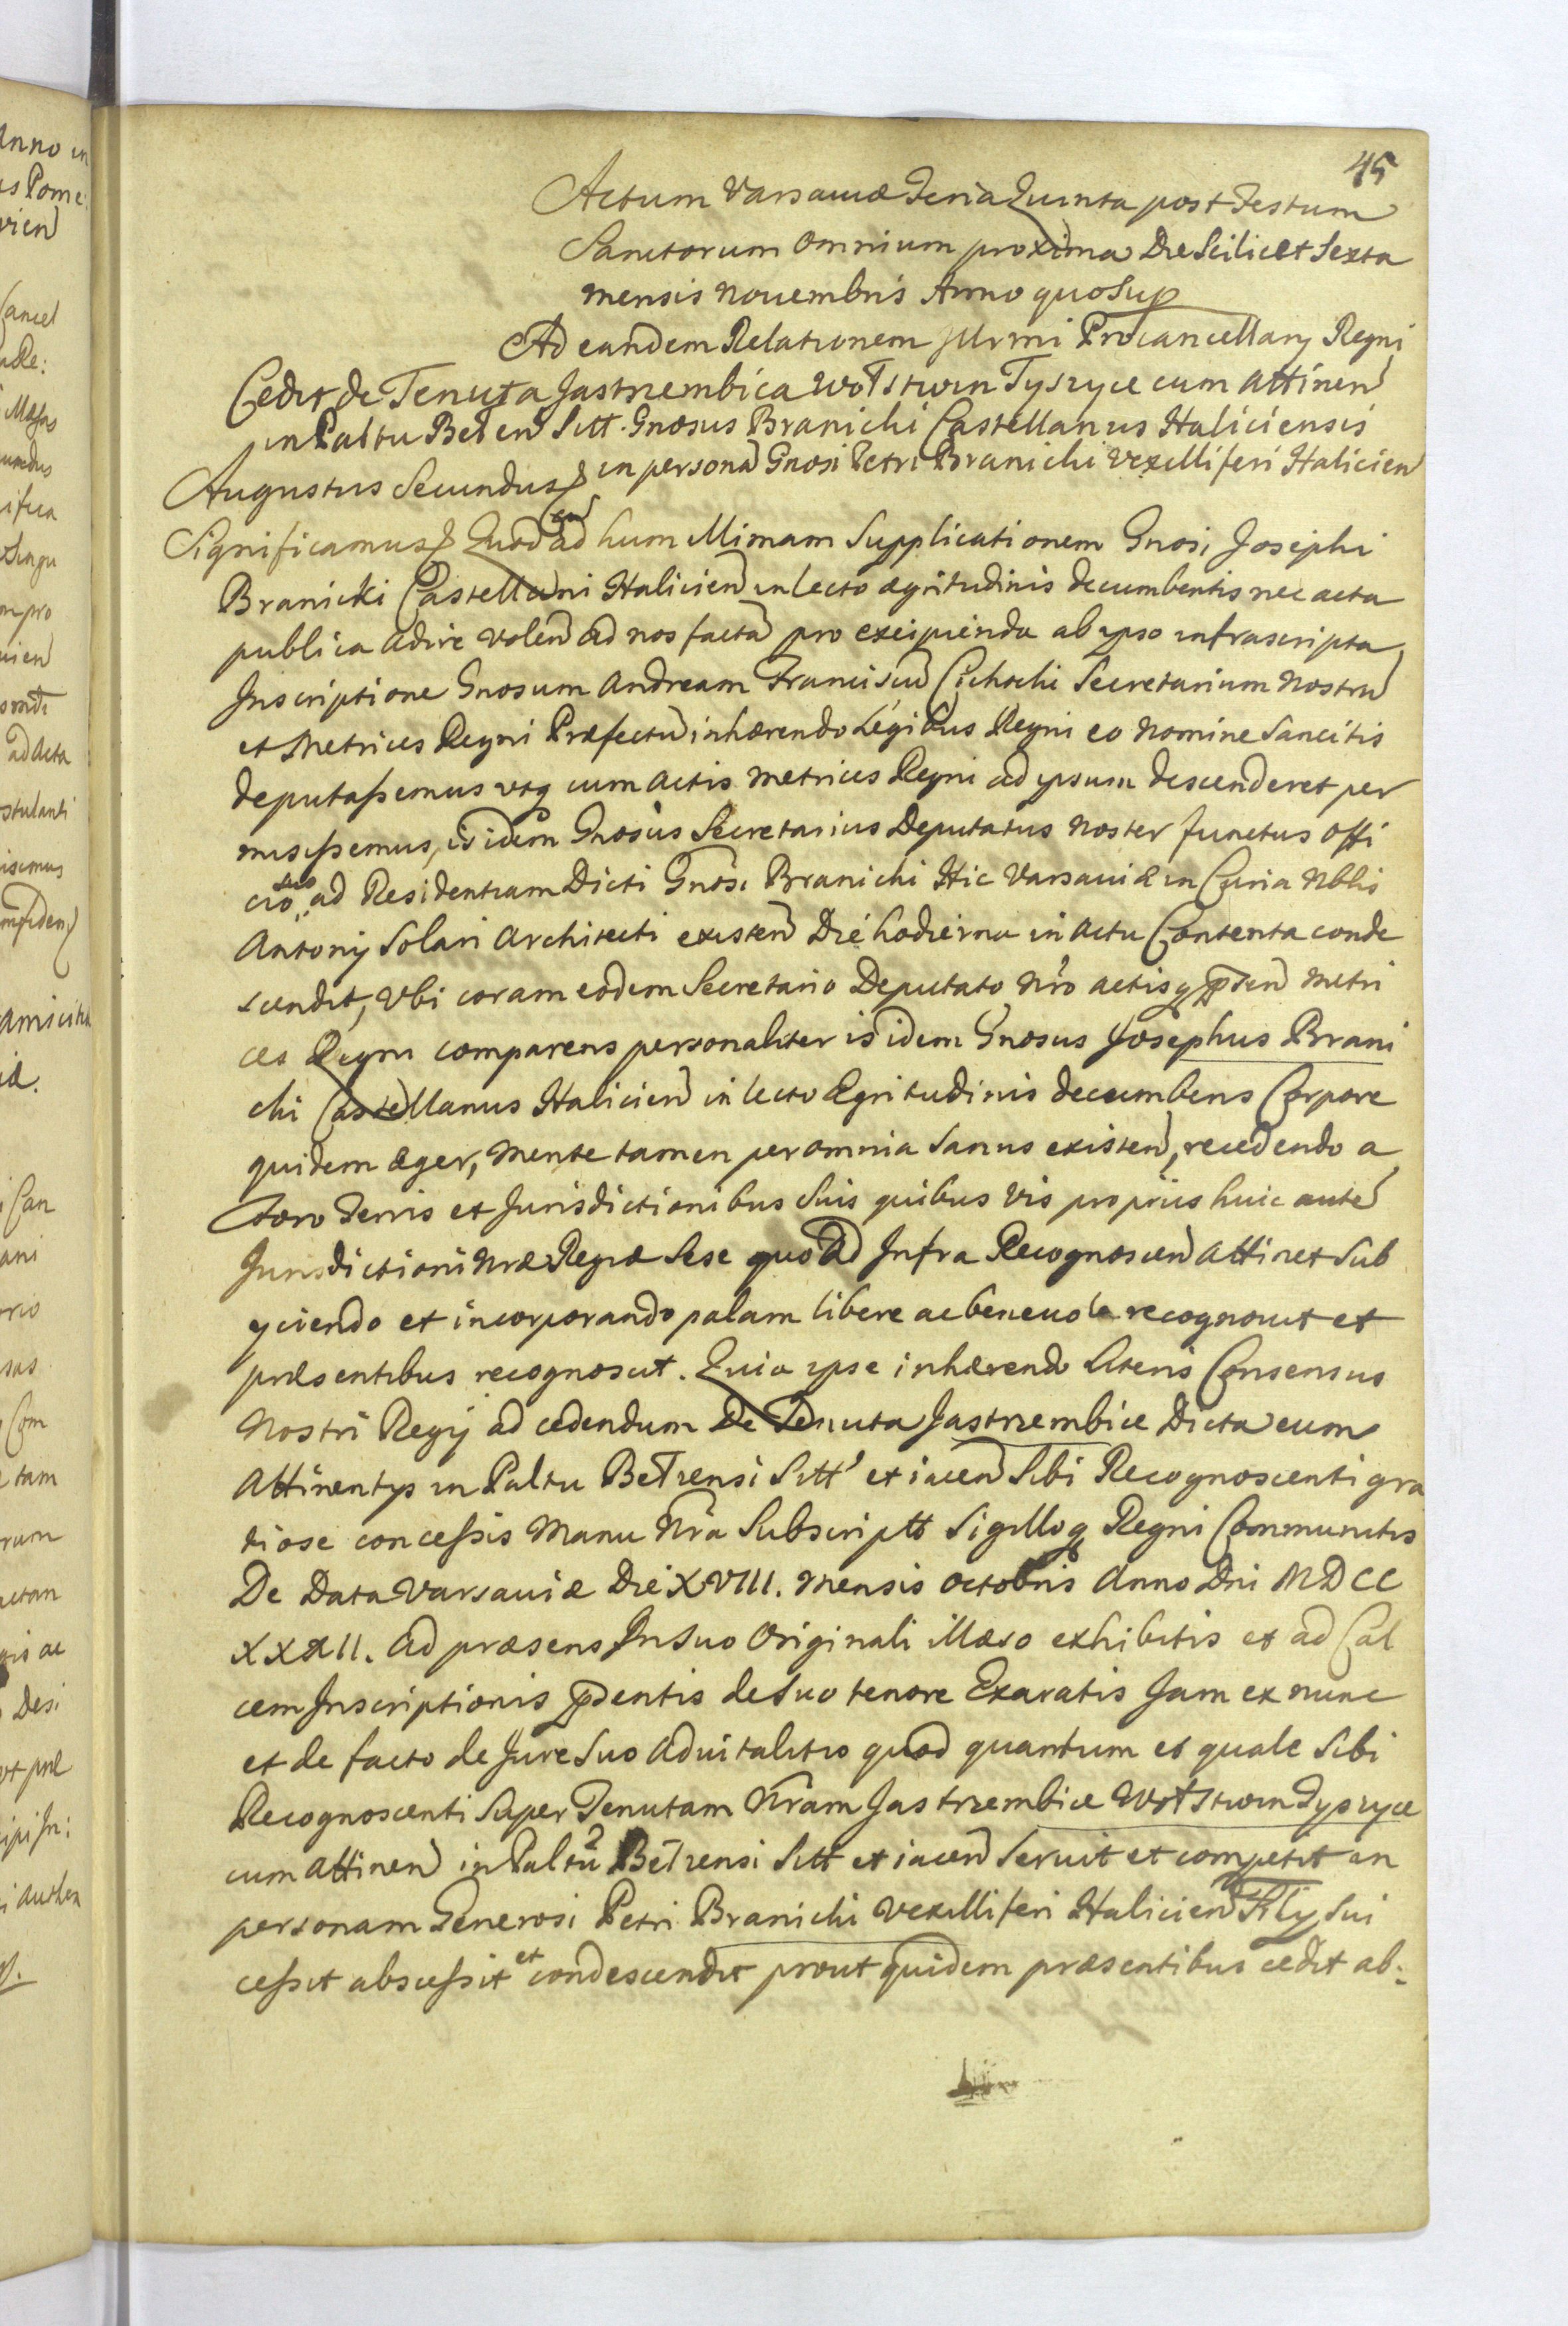 45
Actum Varsaviæ Feria Quinta post Festum
Sanctorum Omnium proxima Die Scilicet Sexta
mensis Novembris Anno quo Sup
Ad eandem Relationem Illrmi Procancellarij Regni
Cedit de Tenuta Jastrzembica Wolstwin Tyszyce cum Attinen
in Paltu Belzen Sitt. Gnosus Branicki Castellanus Haliciensis
in persona Gnosi Petri Branicki Vexilliferi Halicien
Augustus Secundus
Significamus Quod cu ad humillimam Supplicationem Gnosi Josephi
Branicki Castellani Halicien in lecto ægritudinis decumbentis nec acta
publica adire volen ad nos facta pro excipienda ab ipso infrascripta
Inscriptione Gnosum Andream Franciscu Cichocki Secretarium Nostru
et Metrices Regni Præfectu inhærendo Legibus Regni eo Nomine Sancitis
deputassemus utq cum Actis Metrices Regni ad ipsum descenderet per
misissemus, is idem Gnosus Secretarius Deputatus Noster functus offi
cio suo ad Residentiam Dicti Gnosi Branicki Hic Varsaviæ in Curia Nblis
Antonij Solari Architecti existen Die hodierna in Actu Contenta conde
scendit, Vbi coram eodem Secretario Deputato Nro actisq pnten Metri
ces Regni comparens personaliter is idem Gnosus Josephus Brani
cki Castellanus Halicien in lecto Ægritudinis decumbens Corpore
quidem æger, Mente tamen per omnia Sanus existen, recedendo a
Foro Terris et Jurisdictionibus Suis quibus vis proprijs huic aute
Jurisdictioni Nræ Regiæ Sese quo ad Infra Recognoscen attinet Sub
yciendo et incorporando palam libere ac benevole recognovit et
præsentibus recognoscit. Quia ipse inhærendo Literis Consensus
Nostri Regij ad cedendum De Tenuta Jastrzembice Dicta cum
Attinentijs in Paltu Belzensi Sitt et iacen Sibi Recognoscenti gra
tiose concessis Manu Nra Subscriptis Sigilloq Regni Communitis
De Data Varsaviæ Die XVIII. Mensis Octobris Anno Dni MDCC
XXXII. Ad præsens In Suo Originali illæso exhibitis et ad Cal
cem Inscriptionis pdentis de Suo tenore Exaratis Jam ex nunc
et de facto de Jure Suo Advitalitio quod quantum et quale Sibi
Recognoscenti Super Tenutam Nram Jastrzembice Wolstwin Tyszyce
cum Attinen in Paltu Belzensi Sitt et iacen Servit et competit in
personam Generosi Petri Branicki Vexilliferi Halicien Filij Sui
cessit abscessit et condescendit prout quidem præsentibus cedit ab: